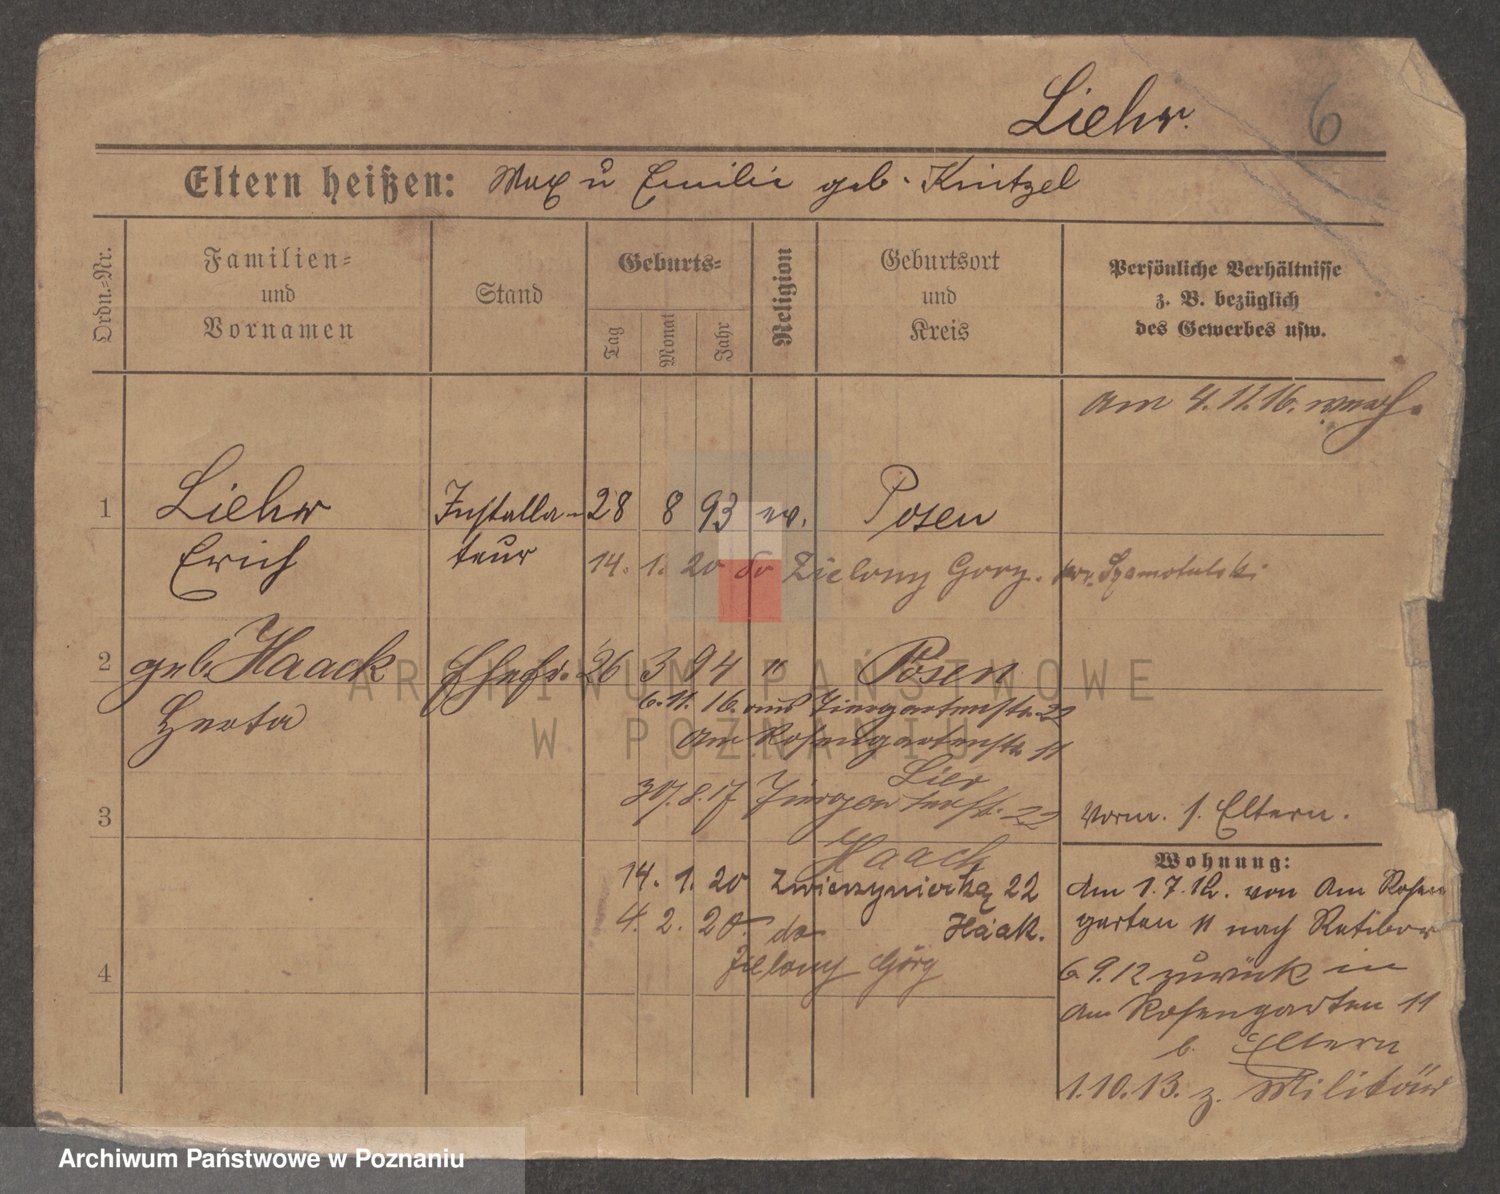 Liehr.
6
Eltern heißen: Max u Emilie geb. Knitzel
Ordn.-Nr.
Familien-
und
Vornamen
Stand
Geburts-
Tag Monat Jahr
Religion
Geburtsort
und
Kreis
Persönliche Verhältnisse
z. B. bezüglich
des Gewerbes usw.
am 4.11.16.
1 Liehr Installa- 28 8 93 ev. Posen
Erich teur 14. 1. 20 do Zielony Gory. pow. Szamotulski
2 geb. Haack Ehefr. 26 3 94 " Posen
Herta
6.11.16. aus Tiergartenstr. 22
Am Rosengartenstr. 11
Lier
30/.8.17 Tiergartenstr. 22
3
vorm. s. Eltern.
Haack
14. 1. 20 Zwierzyniecka 22
4. 2. 20. do Haak.
Zielony Góry
4
Wohnung:
Am 1.7.12. von Am Rosen
garten 11 nach Ratibor
6.9.12 zurück in
Am Rosengarten 11
b. Eltern
1.10.13. z. Militär
ARCHIWUM PAŃSTWOWE
W POZNANIU
Archiwum Państwowe w Poznaniu